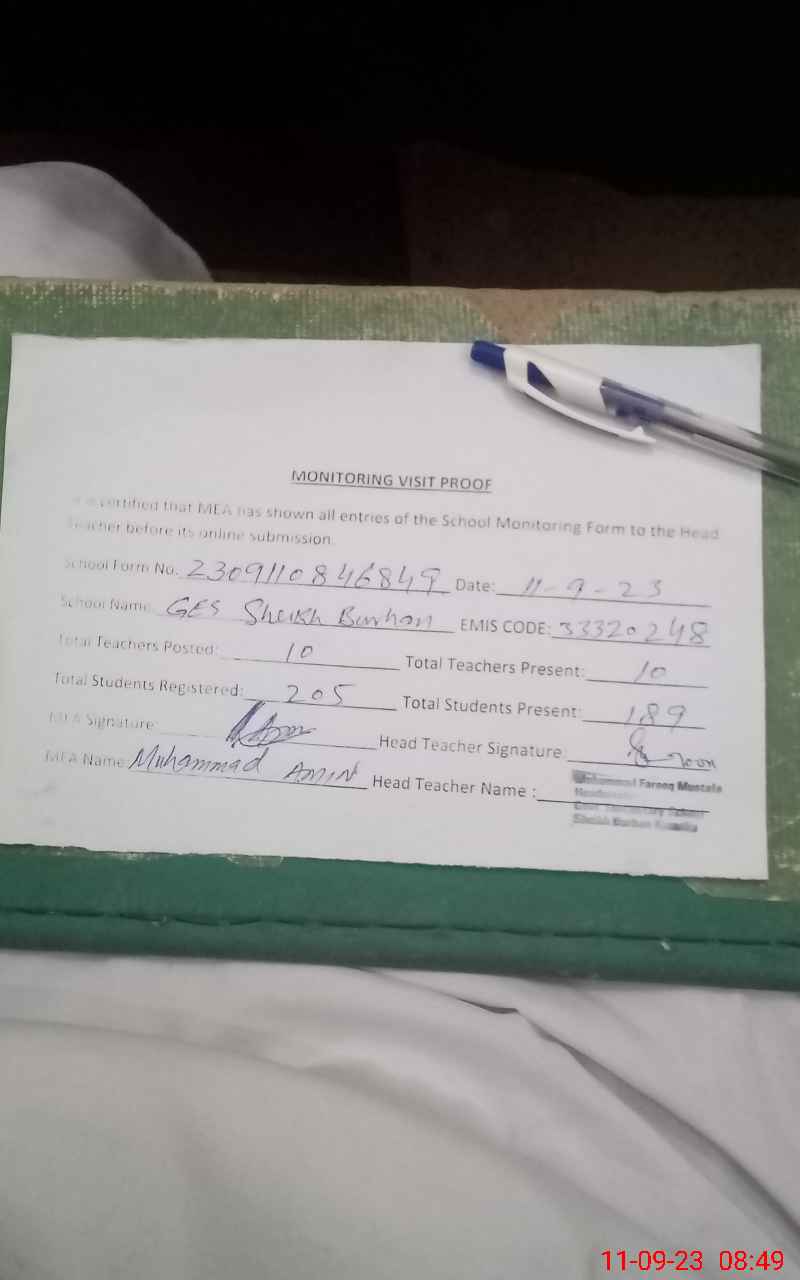 MONITORING VISIT PROOF
certified that MEA has shown all entries of the School Monitoring Form to the Head
Teacher before its online submission.
School Form No. 2309110846849 Date: 11-9-23
School Name GES Sheikh Burhan EMIS CODE: 33320248
Total Teachers Posted: 10 Total Teachers Present: 10
Total Students Registered: 205 Total Students Present: 189
MEA Signature: Head Teacher Signature:
MEA Name Muhammad AMIN Head Teacher Name :
Muhammad Farooq Mustafa
Headmaster
Govt. Elementary School
Sheikh Burhan
11-09-23 08:49